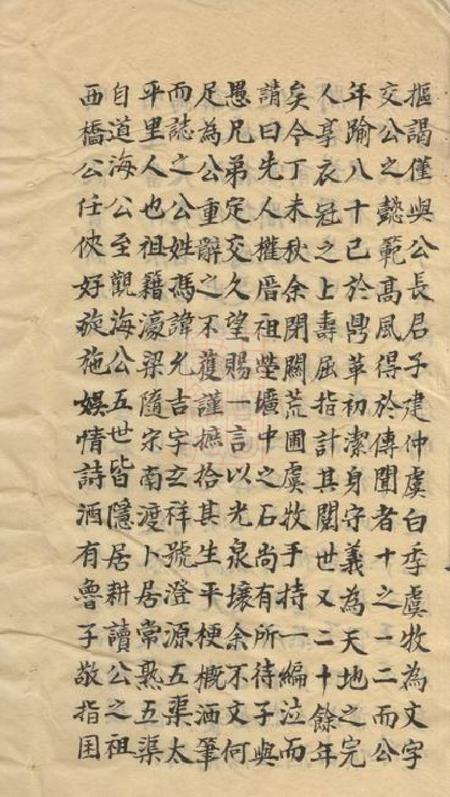 摳謁僅與公長君子建仲虞白季虞牧為文字
交公之懿範高風得於傳聞者十之一二而公
年踰八十已於鼎革初潔身守義為天地之完
人享衣冠之上壽屈指計其閱世又二十餘年
矣今丁未秋余閉關荒圃虞牧手持一編泣而
請曰先人權厝祖塋壙中之石尚有所待子與
愚兄弟定交久望賜一言以光泉壤余不文何
足為公重辭之不獲謹摭拾其生平梗概洒筆
而誌之公姓馮諱允吉字玄祥號澄源五渠太
平里人也祖籍濠梁隨宋南渡卜居常熟五渠
自道海公至觀海公五世皆隱居耕讀公之祖
西橋公任俠好旋施娛情詩酒有魯子敬指囷